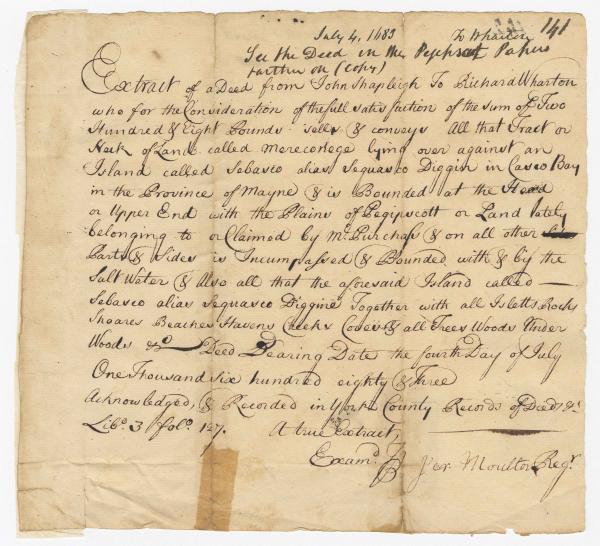 July 4, 1683 To Wharton 141
See the Deed in the Pejepscot Papers
farther on (copy)
Extract of a Deed from John Shapleigh To Richard Wharton
who for the Consideration of the full satisfaction of the sum of Two
Hundred & Eight Pounds sells & conveys All that Tract or
Neck of Land called merecorlege lying over against an
Island called Sebasco alias Sequasco Diggin in Casco Bay
in the Province of Mayne & is Bounded at the Head
or Upper End with the Plains of Pegipscott or Land lately
belonging to or Claimed by Mr. Purchass & on all other
Parts & Sides is Incumpassed & Bounded with & by the
Salt Water & Also all that the aforesaid Island called
Sebasco alias Sequasco Diggine Together with all Isletts Rocks
Shoares Beaches Havens Creeks Coves & all Trees Woods Under
Woods &c Deed Bearing Date the fourth Day of July
One Thousand Six hundred eighty & Three
Acknowledged, & Recorded in York County Records of Deeds &c
Libo. 3 folo. 127. A true Extract,
Examd. Jer. Moulton Regr.